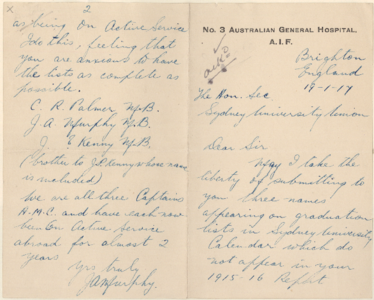 No. 3 AUSTRALIAN GENERAL HOSPITAL,
A.I.F.
Brighton
England
19-1-17
The Hon. Sec
Sydney University Union
Dear Sir
May I take the
liberty of submitting to
you three names
appearing on graduation
lists in Sydney University
Calendar which do
not appear in your
1915-16 Report
2
as being on Active Service
I do this, feeling that
you are anxious to have
the lists as complete as
possible.
C. R. Palmer, M.B.
J. A Murphy M.B.
J. E Kenny M.B.
(brother to Kenny whose name
is included)
We are all three Captains
A.M.C. and have each now
been on Active Service
abroad for almost 2
years
Yrs truly
J A Murphy.